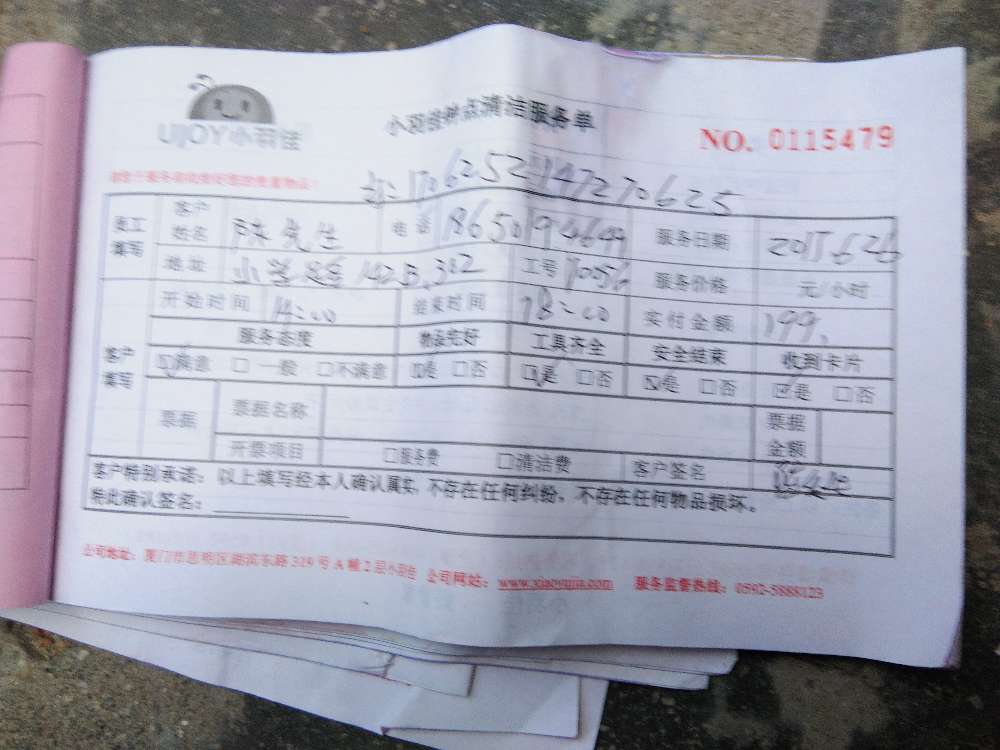 UJOY小羽佳
小羽佳钟点清洁服务单
NO. 0115479
1706252147270625
员工填写 客户姓名 陈先生 电话 18650194644 服务日期 2017.6.26
地址 142 302 工号 11056 服务价格 元/小时
开始时间 14:00 结束时间 18:00 实付金额 199.
客户填写 服务态度 物品完好 工具齐全 安全结束 收到卡片
☑满意 □一般 □不满意 ☑是 □否 ☑是 □否 ☑是 □否 ☑是 □否
票据 票据名称 票据金额
开票项目 □服务费 □清洁费 客户签名
客户特别承诺:以上填写经本人确认属实,不存在任何纠纷,不存在任何物品损坏。
特此确认签名:
公司地址:厦门市思明区湖滨东路319号A幢2层小羽佳 公司网站:www.xiaoyujia.com 服务监督热线:0592-5888123